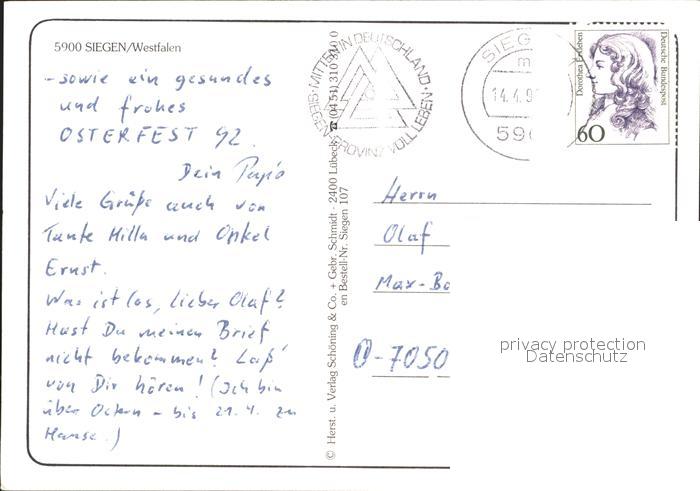 5900 SIEGEN/Westfalen
- sowie ein gesundes
und frohes
OSTERFEST 92.
Dein Papis
Viele Grüße auch von
Tante Hilla und Onkel
Ernst.
Was ist los, lieber Olaf?
Hast Du meinen Brief
nicht bekommen? Laß
von Dir hören! (Ich bin
über Ostern - bis 21.4. zu
Hause.)
© Herst. u. Verlag Schöning & Co. + Gebr. Schmidt · 2400 Lübeck ☎ (0451) 310 310 0
en Bestell-Nr. Siegen 107
SIEGEN · MITTEN IN DEUTSCHLAND ·
PROVINZ VOLL LEBEN
SIEG
m
14.4.9
590
Dorothea Erxleben
Deutsche Bundespost
60
Herrn
Olaf
Max-Bo
D-7050
privacy protection
Datenschutz